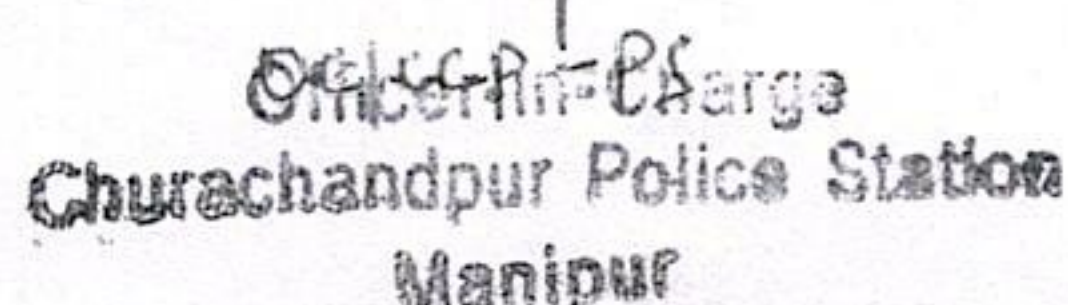 Officer-in-Charge
OC/CCP-PS
Churachandpur Police Station
Manipur